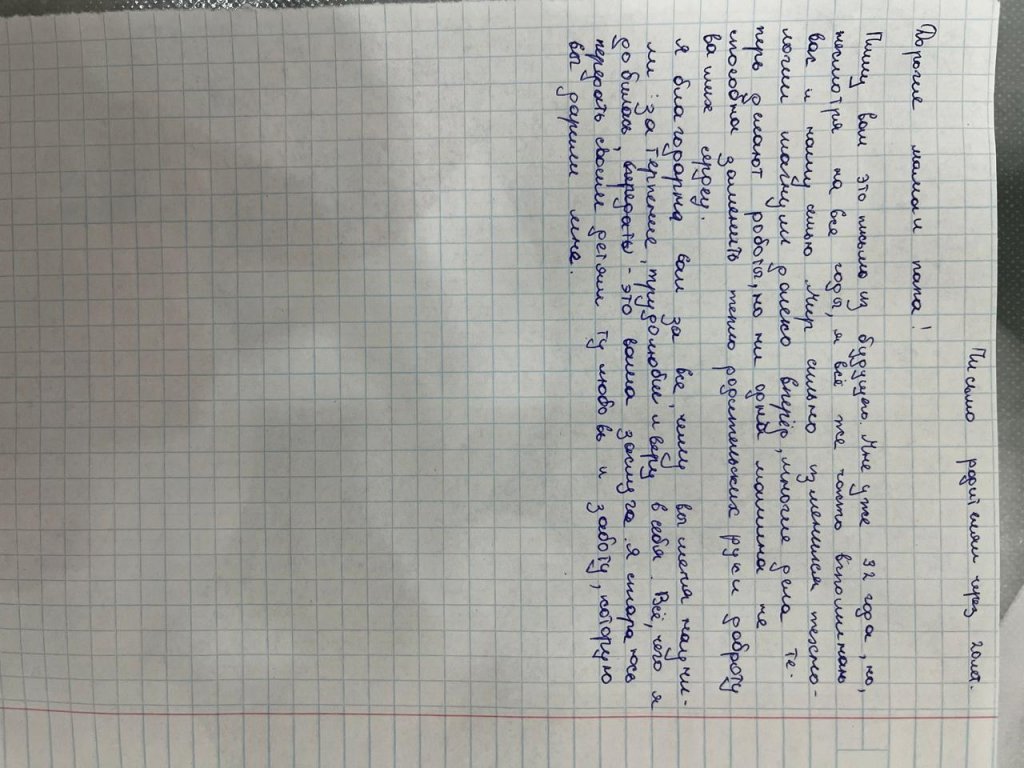 Письмо родителям через года.
Дорогие мама и папа!
Пишу вам это письмо из будущего. Мне уже 32 года, но,
несмотря на все года, я всё же часто вспоминаю
вас и нашу семью. Мир сильно изменился техно-
логии шагнули далеко вперёд, многие дела те-
перь делают роботы, но ни одна машина не
способна заменить тепло родительских рук и доброту
ваших сердец.
Я благодарна вам за все, чему вы меня научи-
ли: за терпение, трудолюбие и веру в себя. Всё, чего я
добилась, - это ваша заслуга. Я стараюсь
передать своим детям ту любовь и заботу, которую
вы дарили мне.